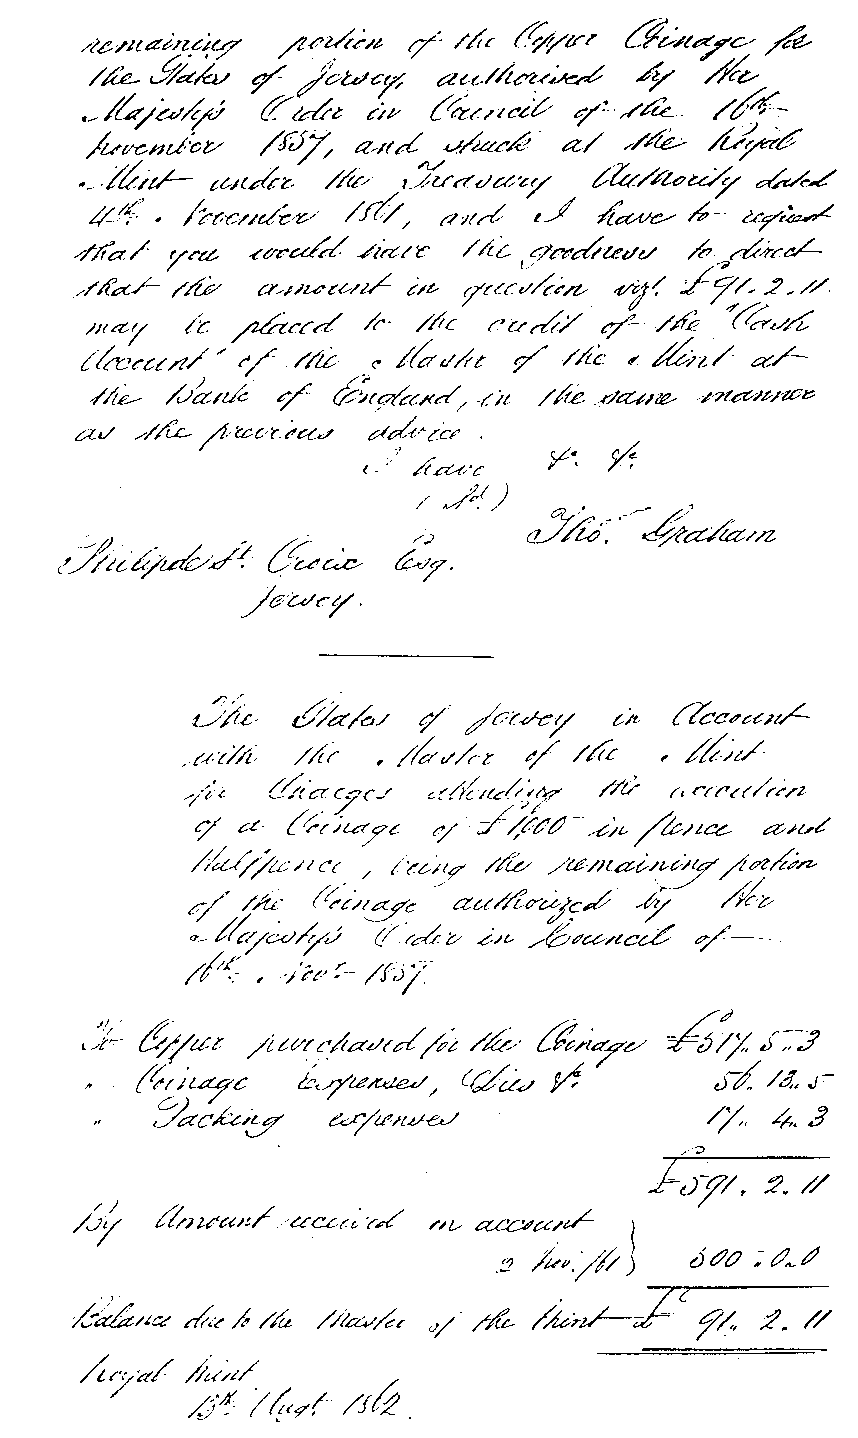 remaining portion of the Copper Coinage for
the States of Jersey, authorised by Her
Majesty's Order in Council of the 16th
November 1857, and struck at the Royal
Mint under the Treasury Authority dated
4th November 1861, and I have to request
that you would have the goodness to direct
that the amount in question vizt. £91.2.11
may be placed to the credit of the "Cash
Account" of the Master of the Mint at
the Bank of England, in the same manner
as the previous advice.
I have &c. &c.
(Sd.)
Thos. Graham
Philip de St. Croix Esq.
Jersey.
The States of Jersey in Account
with the Master of the Mint
for Charges attending the execution
of a Coinage of £1000 in Pence and
Halfpence, being the remaining portion
of the Coinage authorized by Her
Majesty's Order in Council of
16th Novr. 1857.
To Copper purchased for the Coinage £517. 5. 3
" Coinage Expenses, Dies &c. 56. 13. 5
" Packing expenses 17. 4. 3
£591. 2. 11
By Amount received on account
2 Nov. /61 } 500. 0. 0
Balance due to the Master of the Mint £ 91. 2. 11
Royal Mint
13th Augt. 1862.